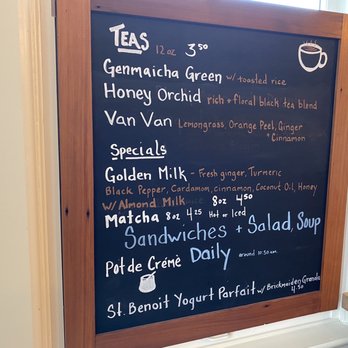 TEAS 12 oz 3.50
Genmaicha Green w/ toasted rice
Honey Orchid rich + floral black tea blend
Van Van Lemongrass, Orange Peel, Ginger
+ Cinnamon
Specials
Golden Milk - Fresh ginger, Turmeric
Black Pepper, Cardamon, cinnamon, Coconut Oil, Honey
w/ Almond Milk 8oz 4.50
Matcha 8oz 4.25 Hot or Iced
Sandwiches + Salad, Soup
Daily around 10:30am
Pot de Crémè
St. Benoit Yogurt Parfait w/ Brickmaiden Granola
4.50